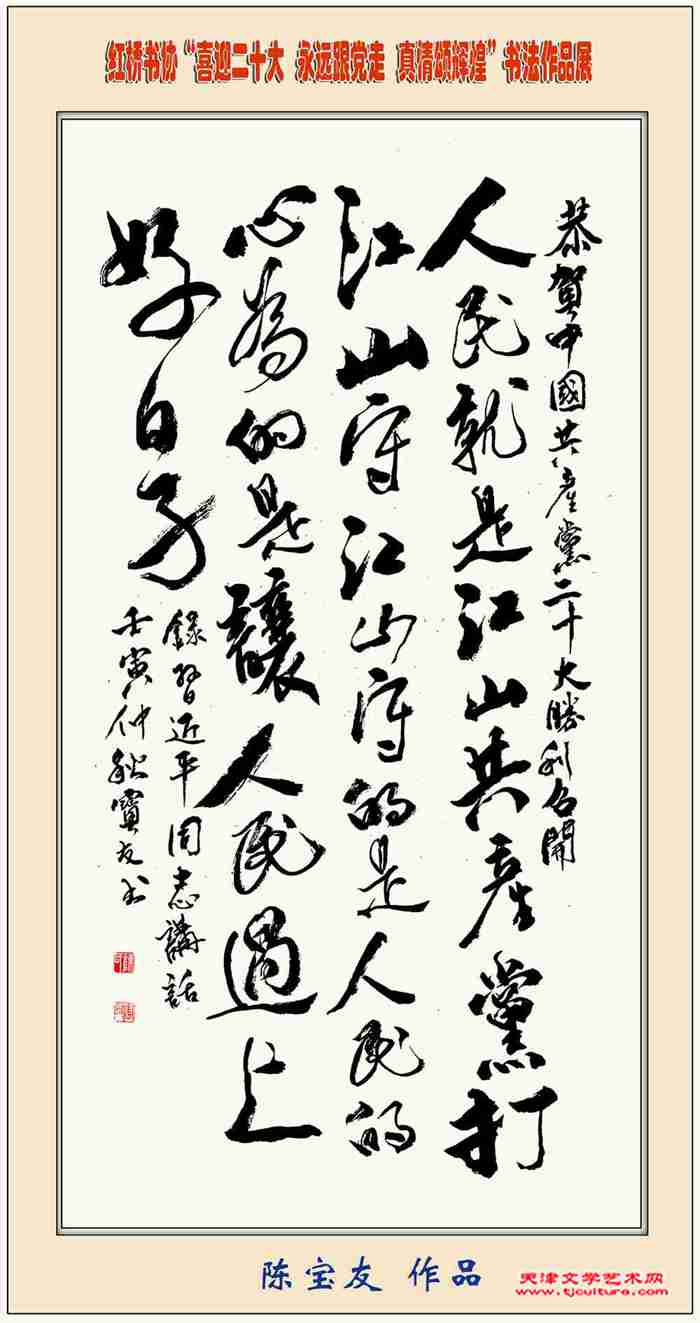 红桥书协“喜迎二十大 永远跟党走 真情颂辉煌”书法作品展
恭賀中國共産黨二十大勝利召開
人民就是江山共產黨打
江山守江山守的是人民的
心為的是讓人民過上
好日子
錄習近平同志講話
壬寅仲秋寶友书
陈宝友 作品
天津文学艺术网
www.tjculture.com